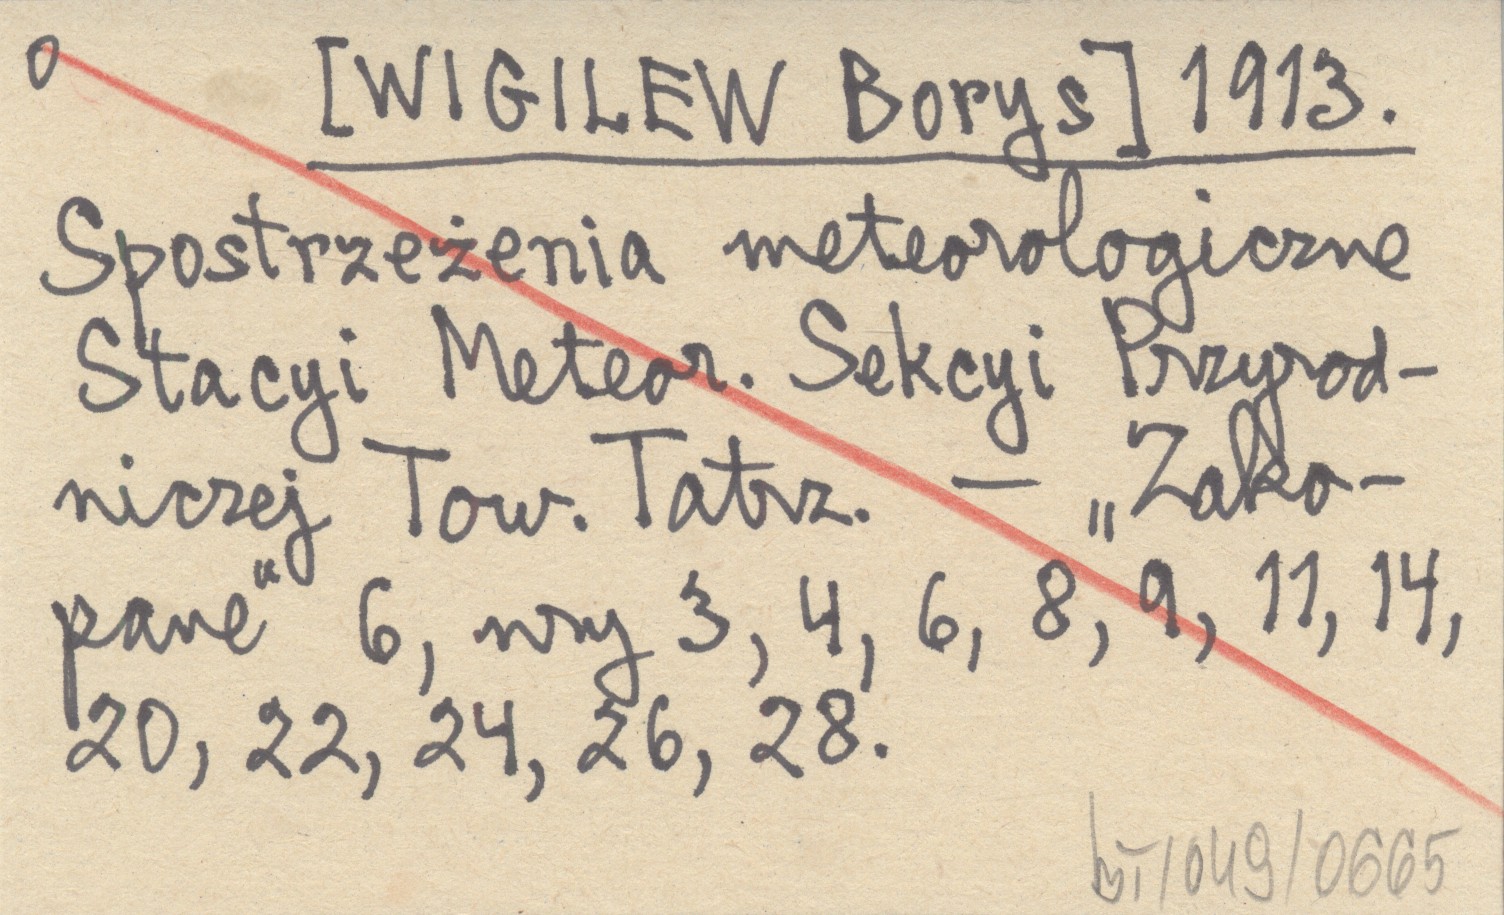 0 [WIGILEW Borys] 1913.
Spostrzeżenia meteorologiczne
Stacyi Meteor. Sekcyi Przyrod-
niczej Tow. Tatrz. — „Zako-
pane" 6, nry 3, 4, 6, 8, 9, 11, 14,
20, 22, 24, 26, 28.
/049/0665